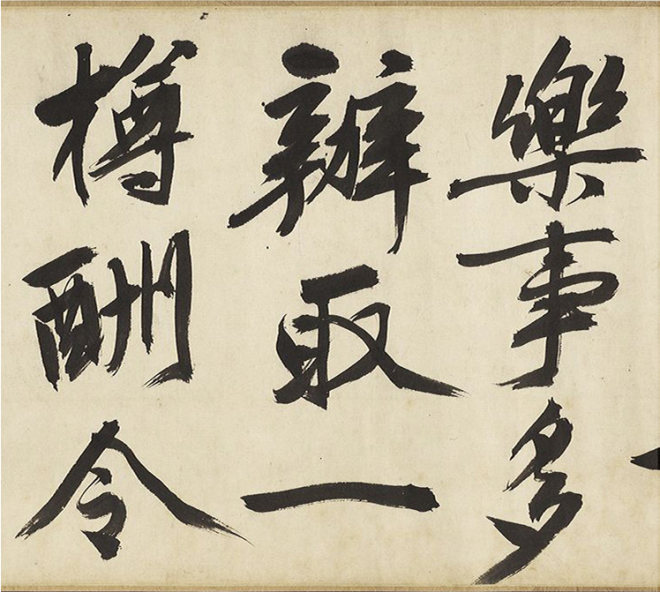 樂事多
辦取一
樽酬令